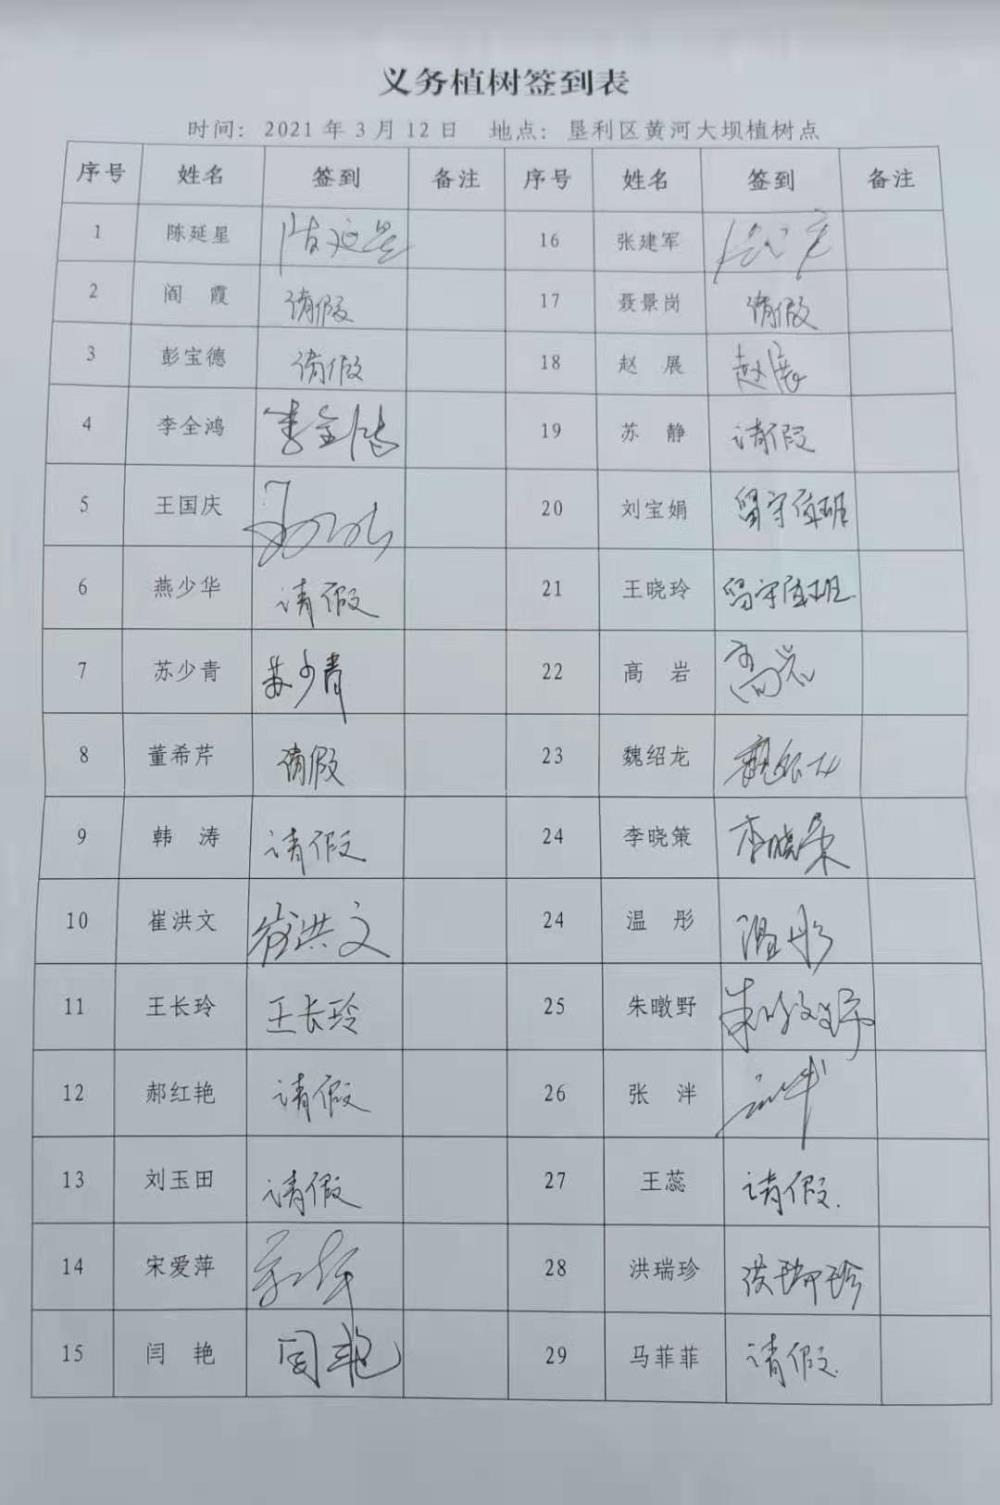 义务植树签到表
时间: 2021 年 3 月 12 日 地点: 垦利区黄河大坝植树点
序号 姓名 签到 备注 序号 姓名 签到 备注
1 陈延星 陈延星 16 张建军
2 阎 霞 请假 17 聂景岗 请假
3 彭宝德 请假 18 赵 展 赵展
4 李全鸿 李全鸿 19 苏 静 请假
5 王国庆 20 刘宝娟 留守值班
6 燕少华 请假 21 王晓玲 留守值班
7 苏少青 苏少青 22 高 岩 高岩
8 董希芹 请假 23 魏绍龙 魏绍龙
9 韩 涛 请假 24 李晓策 李晓策
10 崔洪文 崔洪文 24 温 彤 温彤
11 王长玲 王长玲 25 朱暾野 朱暾野
12 郝红艳 请假 26 张 泮
13 刘玉田 请假 27 王蕊 请假.
14 宋爱萍 28 洪瑞珍 洪瑞珍
15 闫 艳 闫艳 29 马菲菲 请假.